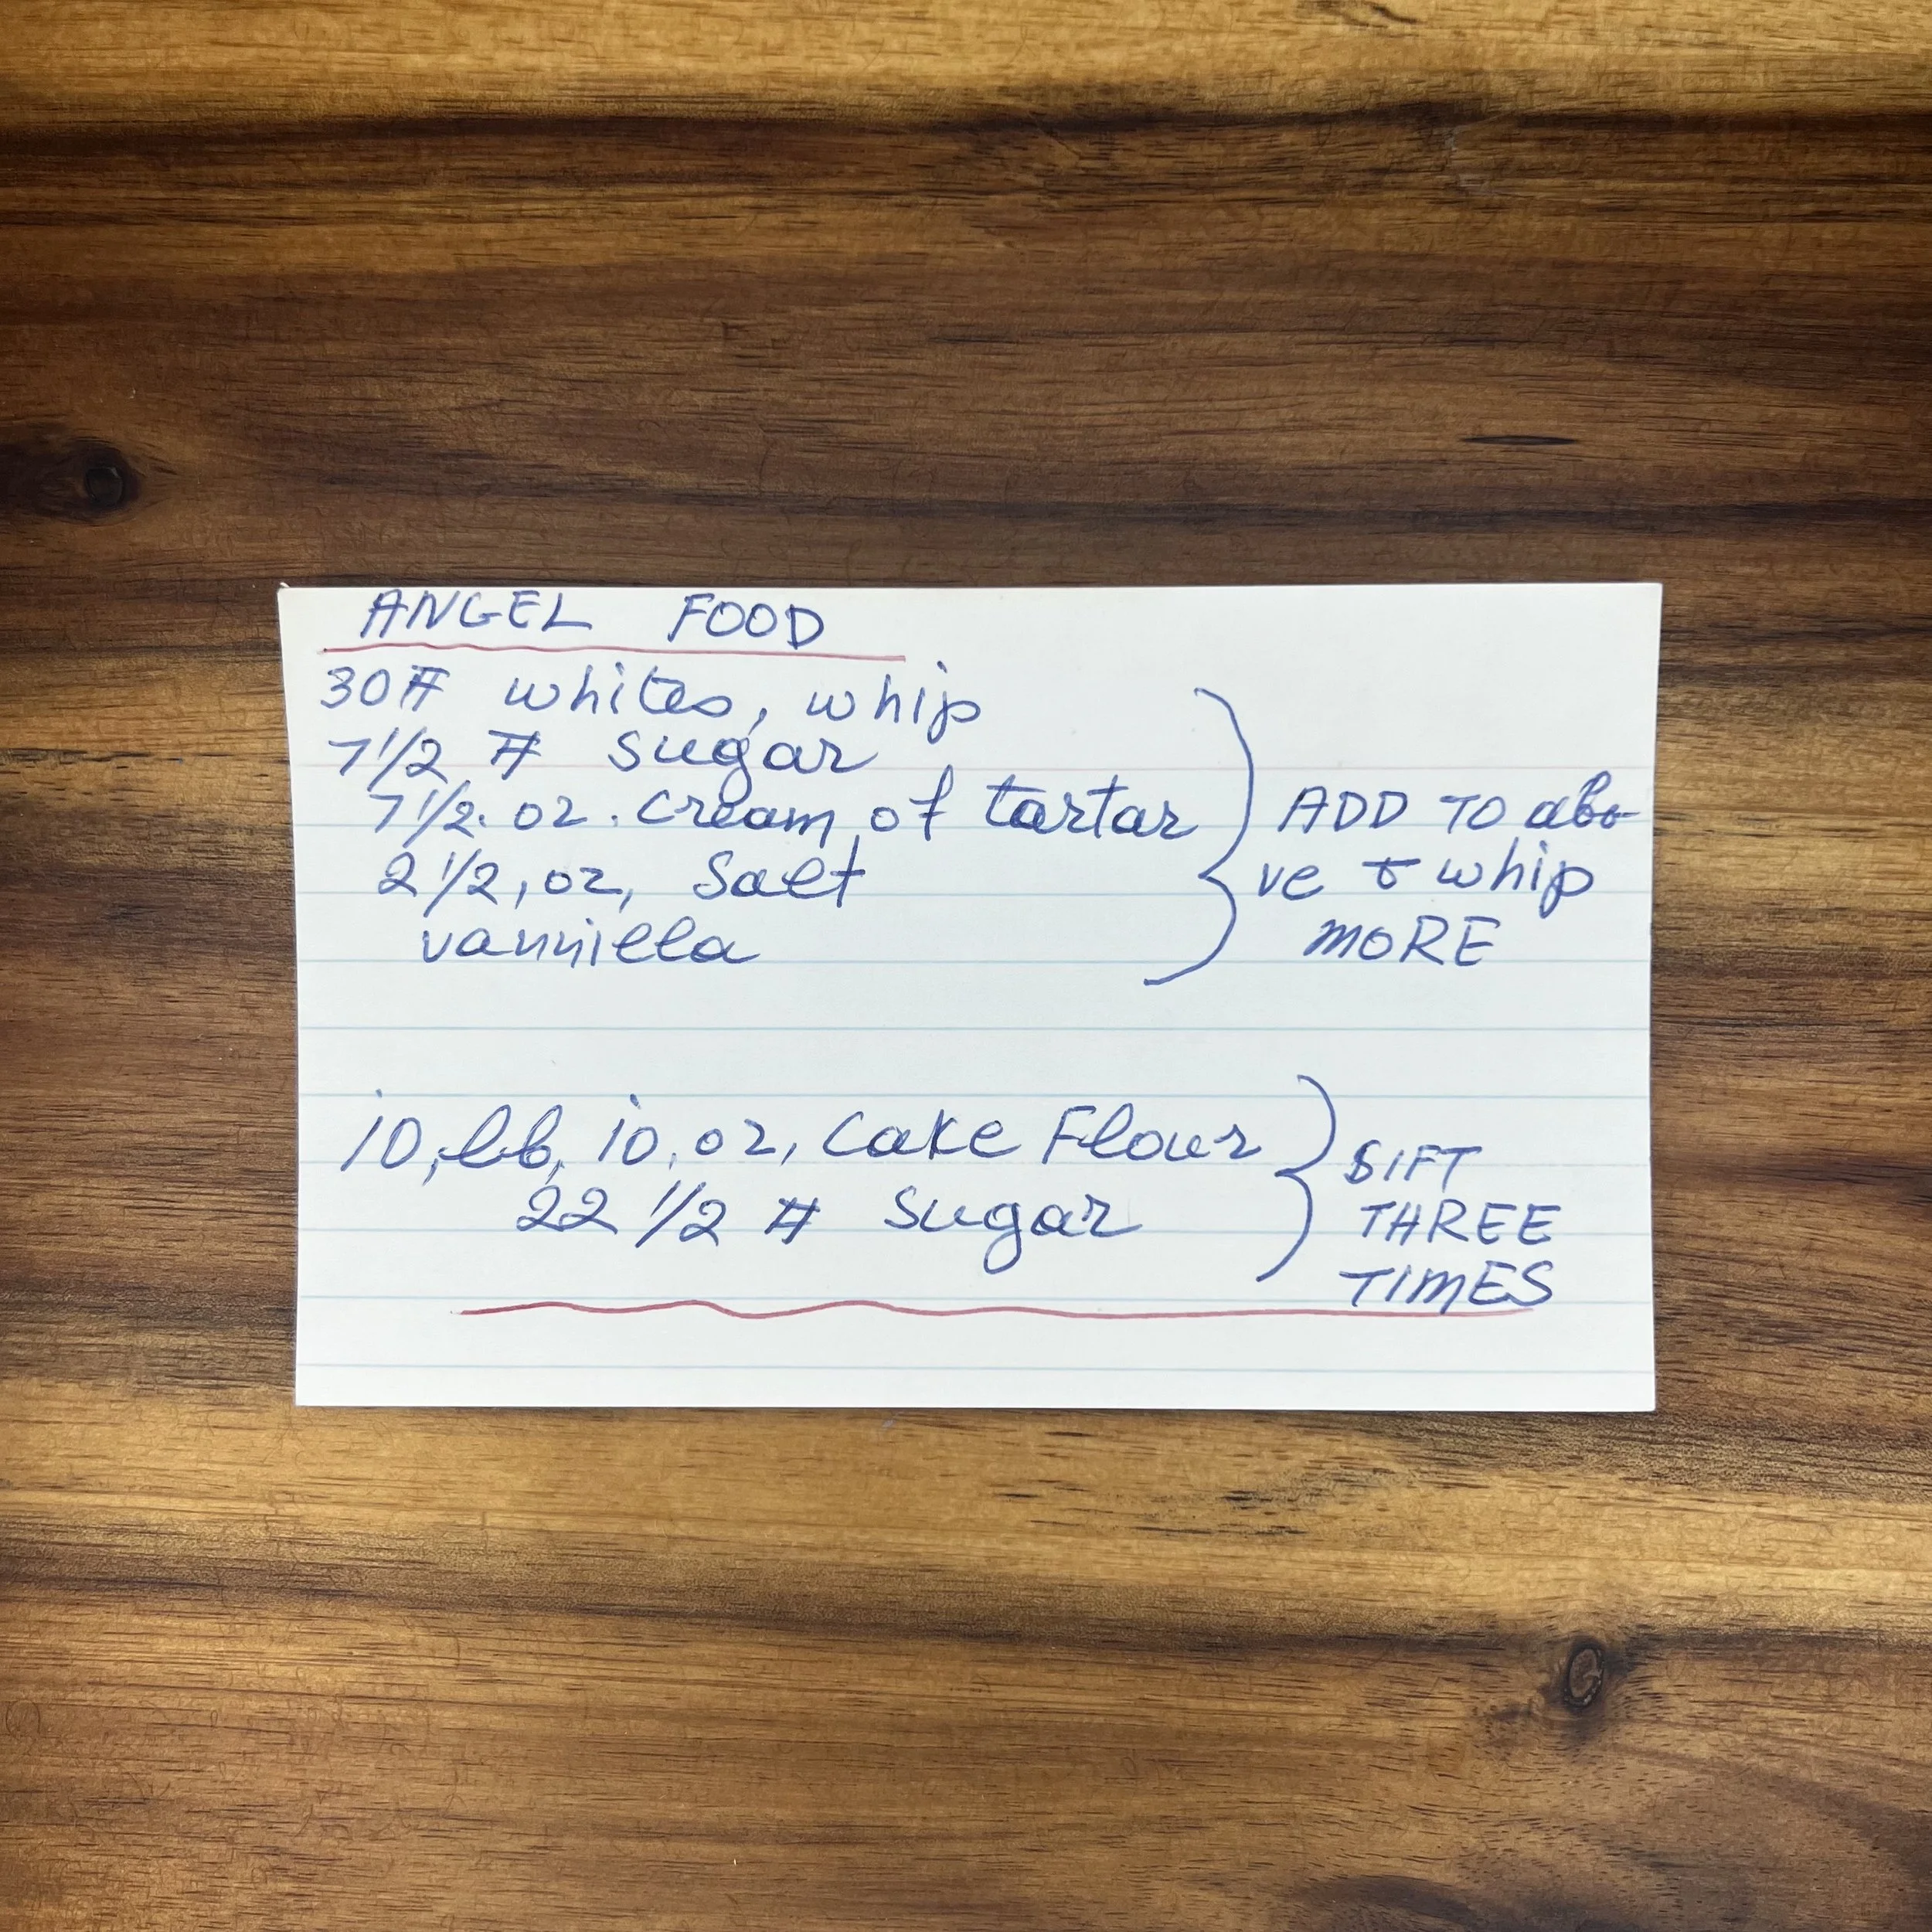 ANGEL FOOD
30# whites, whip
7 1/2 # sugar
7 1/2. oz. cream of tartar
2 1/2, oz, Salt
vanniella
ADD TO abo-
ve & whip
MORE
10, lb, 10, oz, Cake Flour
22 1/2 # Sugar
SIFT
THREE
TIMES